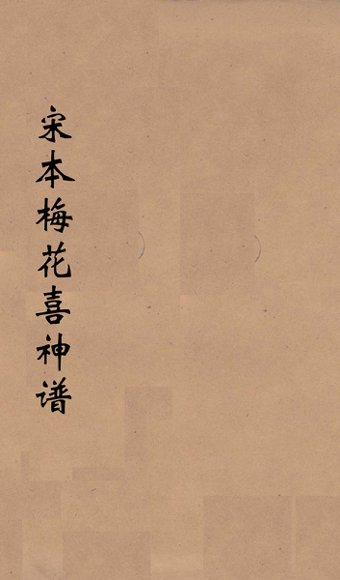 宋本梅花喜神谱